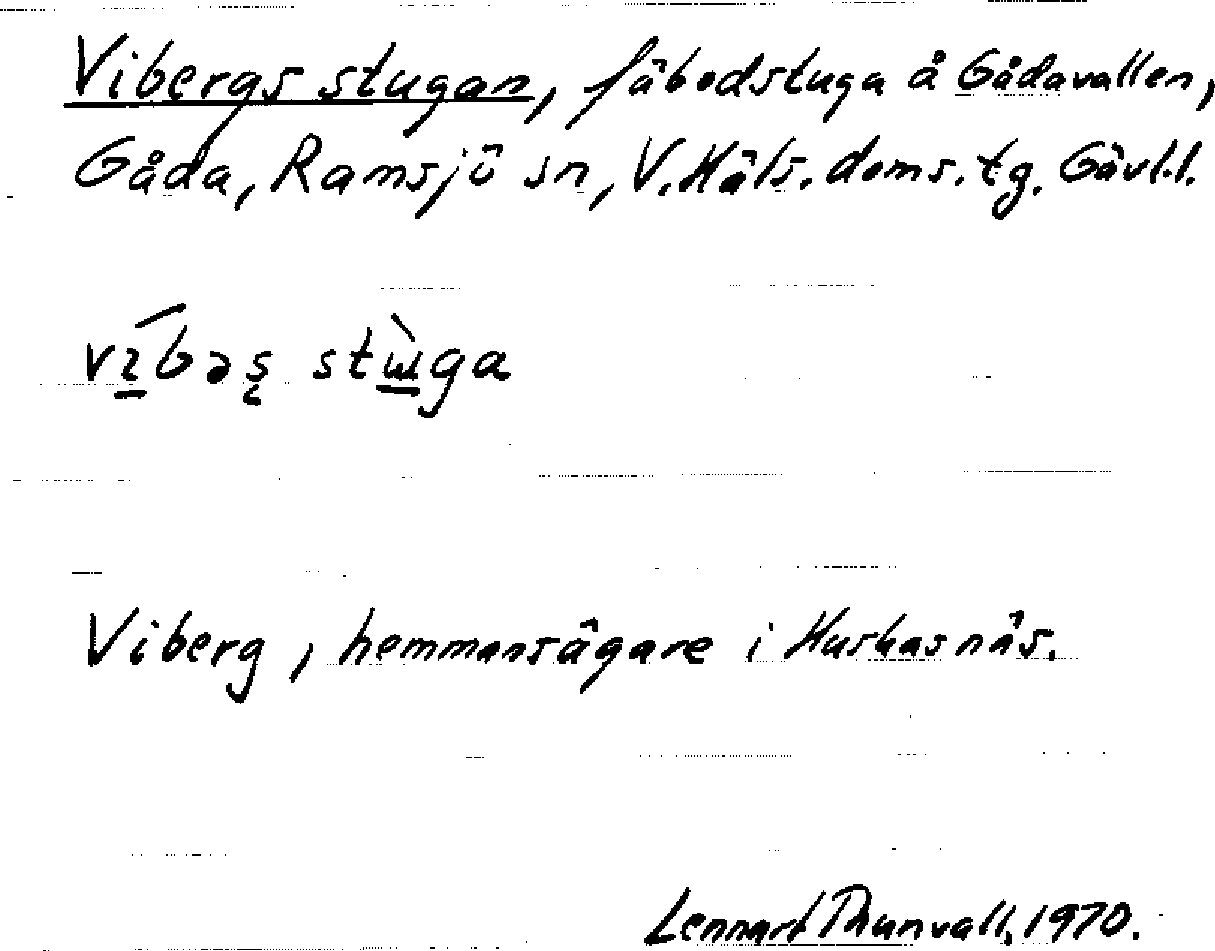 Vibergs stugan, fäbodstuga å Gådavallen,
Gåda, Ramsjö sn, V. Häls. doms. tg. Gävl.l.
ví̲bəş stɯ̲̀ga
Viberg, hemmansägare i Huskasnäs.
Lennart Thunvall, 1970.